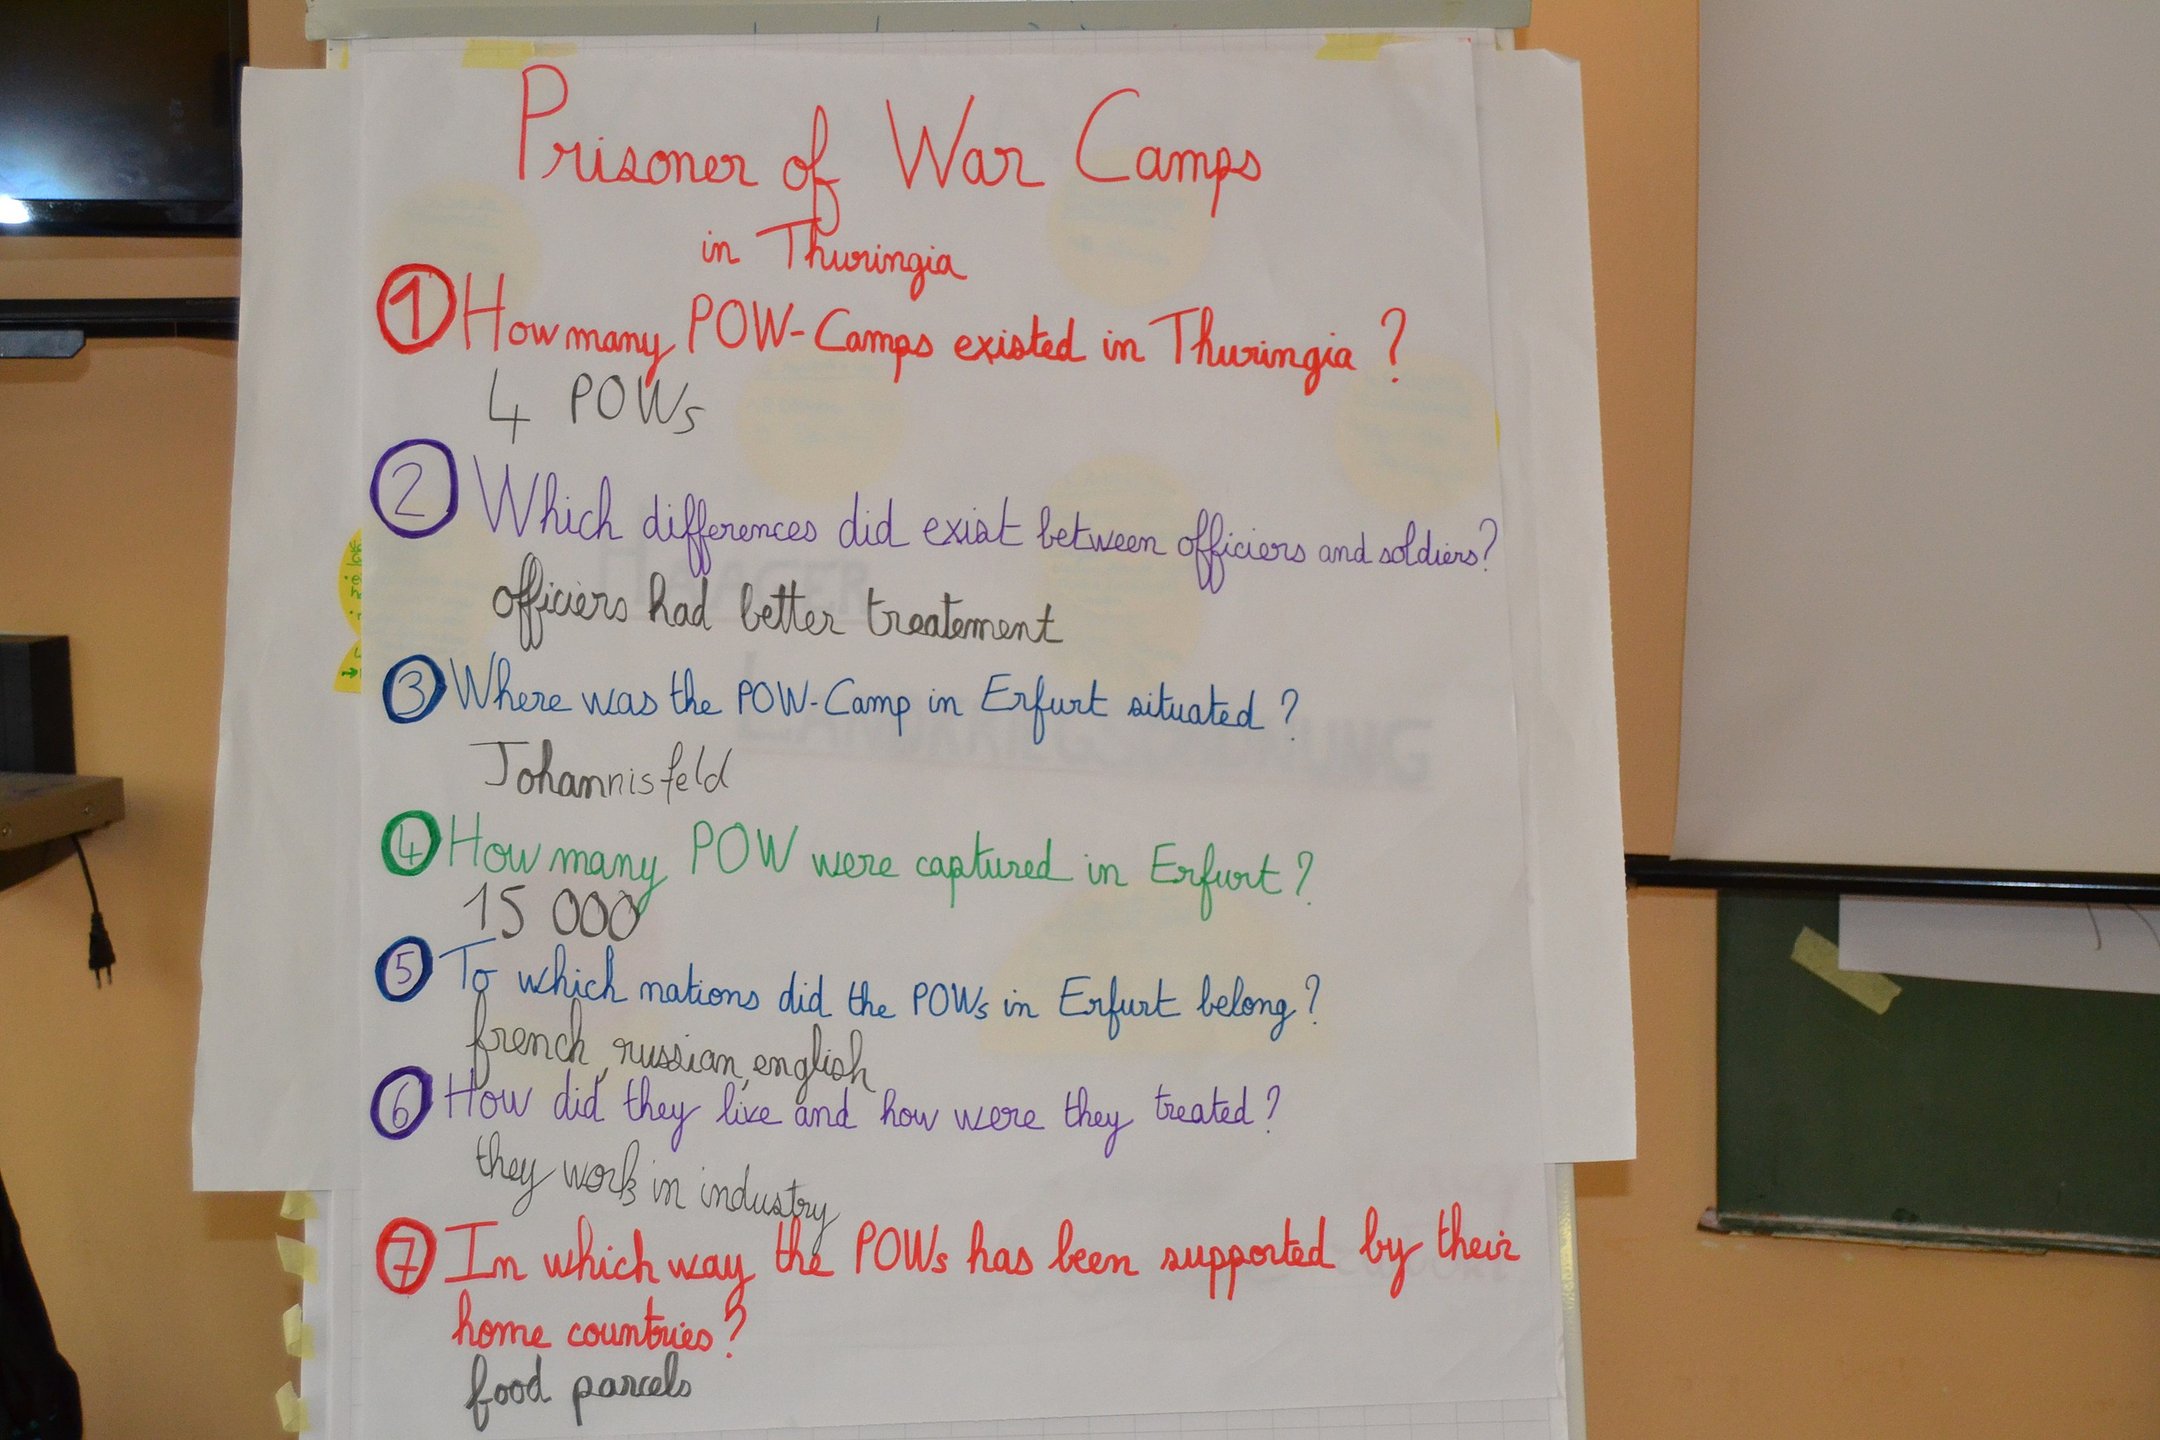 Prisoner of War Camps
in Thuringia
1 How many POW-Camps existed in Thuringia ?
4 POWs
2 Which differences did exist between officiers and soldiers?
officiers had better treatement
3 Where was the POW-Camp in Erfurt situated ?
Johannisfeld
4 How many POW were captured in Erfurt ?
15 000
5 To which nations did the POWs in Erfurt belong ?
french, russian, english
6 How did they live and how were they treated ?
they work in industry
7 In which way the POWs has been supported by their
home countries ?
food parcels